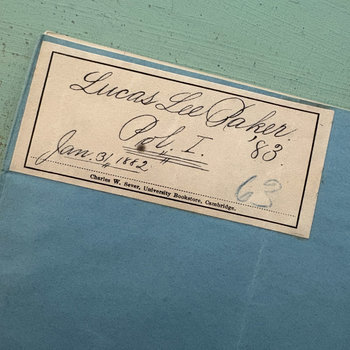 Lucas Lee Baker.
'83.
Pol. I.
Jan. 31, 1882
63
Charles W. Sever, University Bookstore, Cambridge.